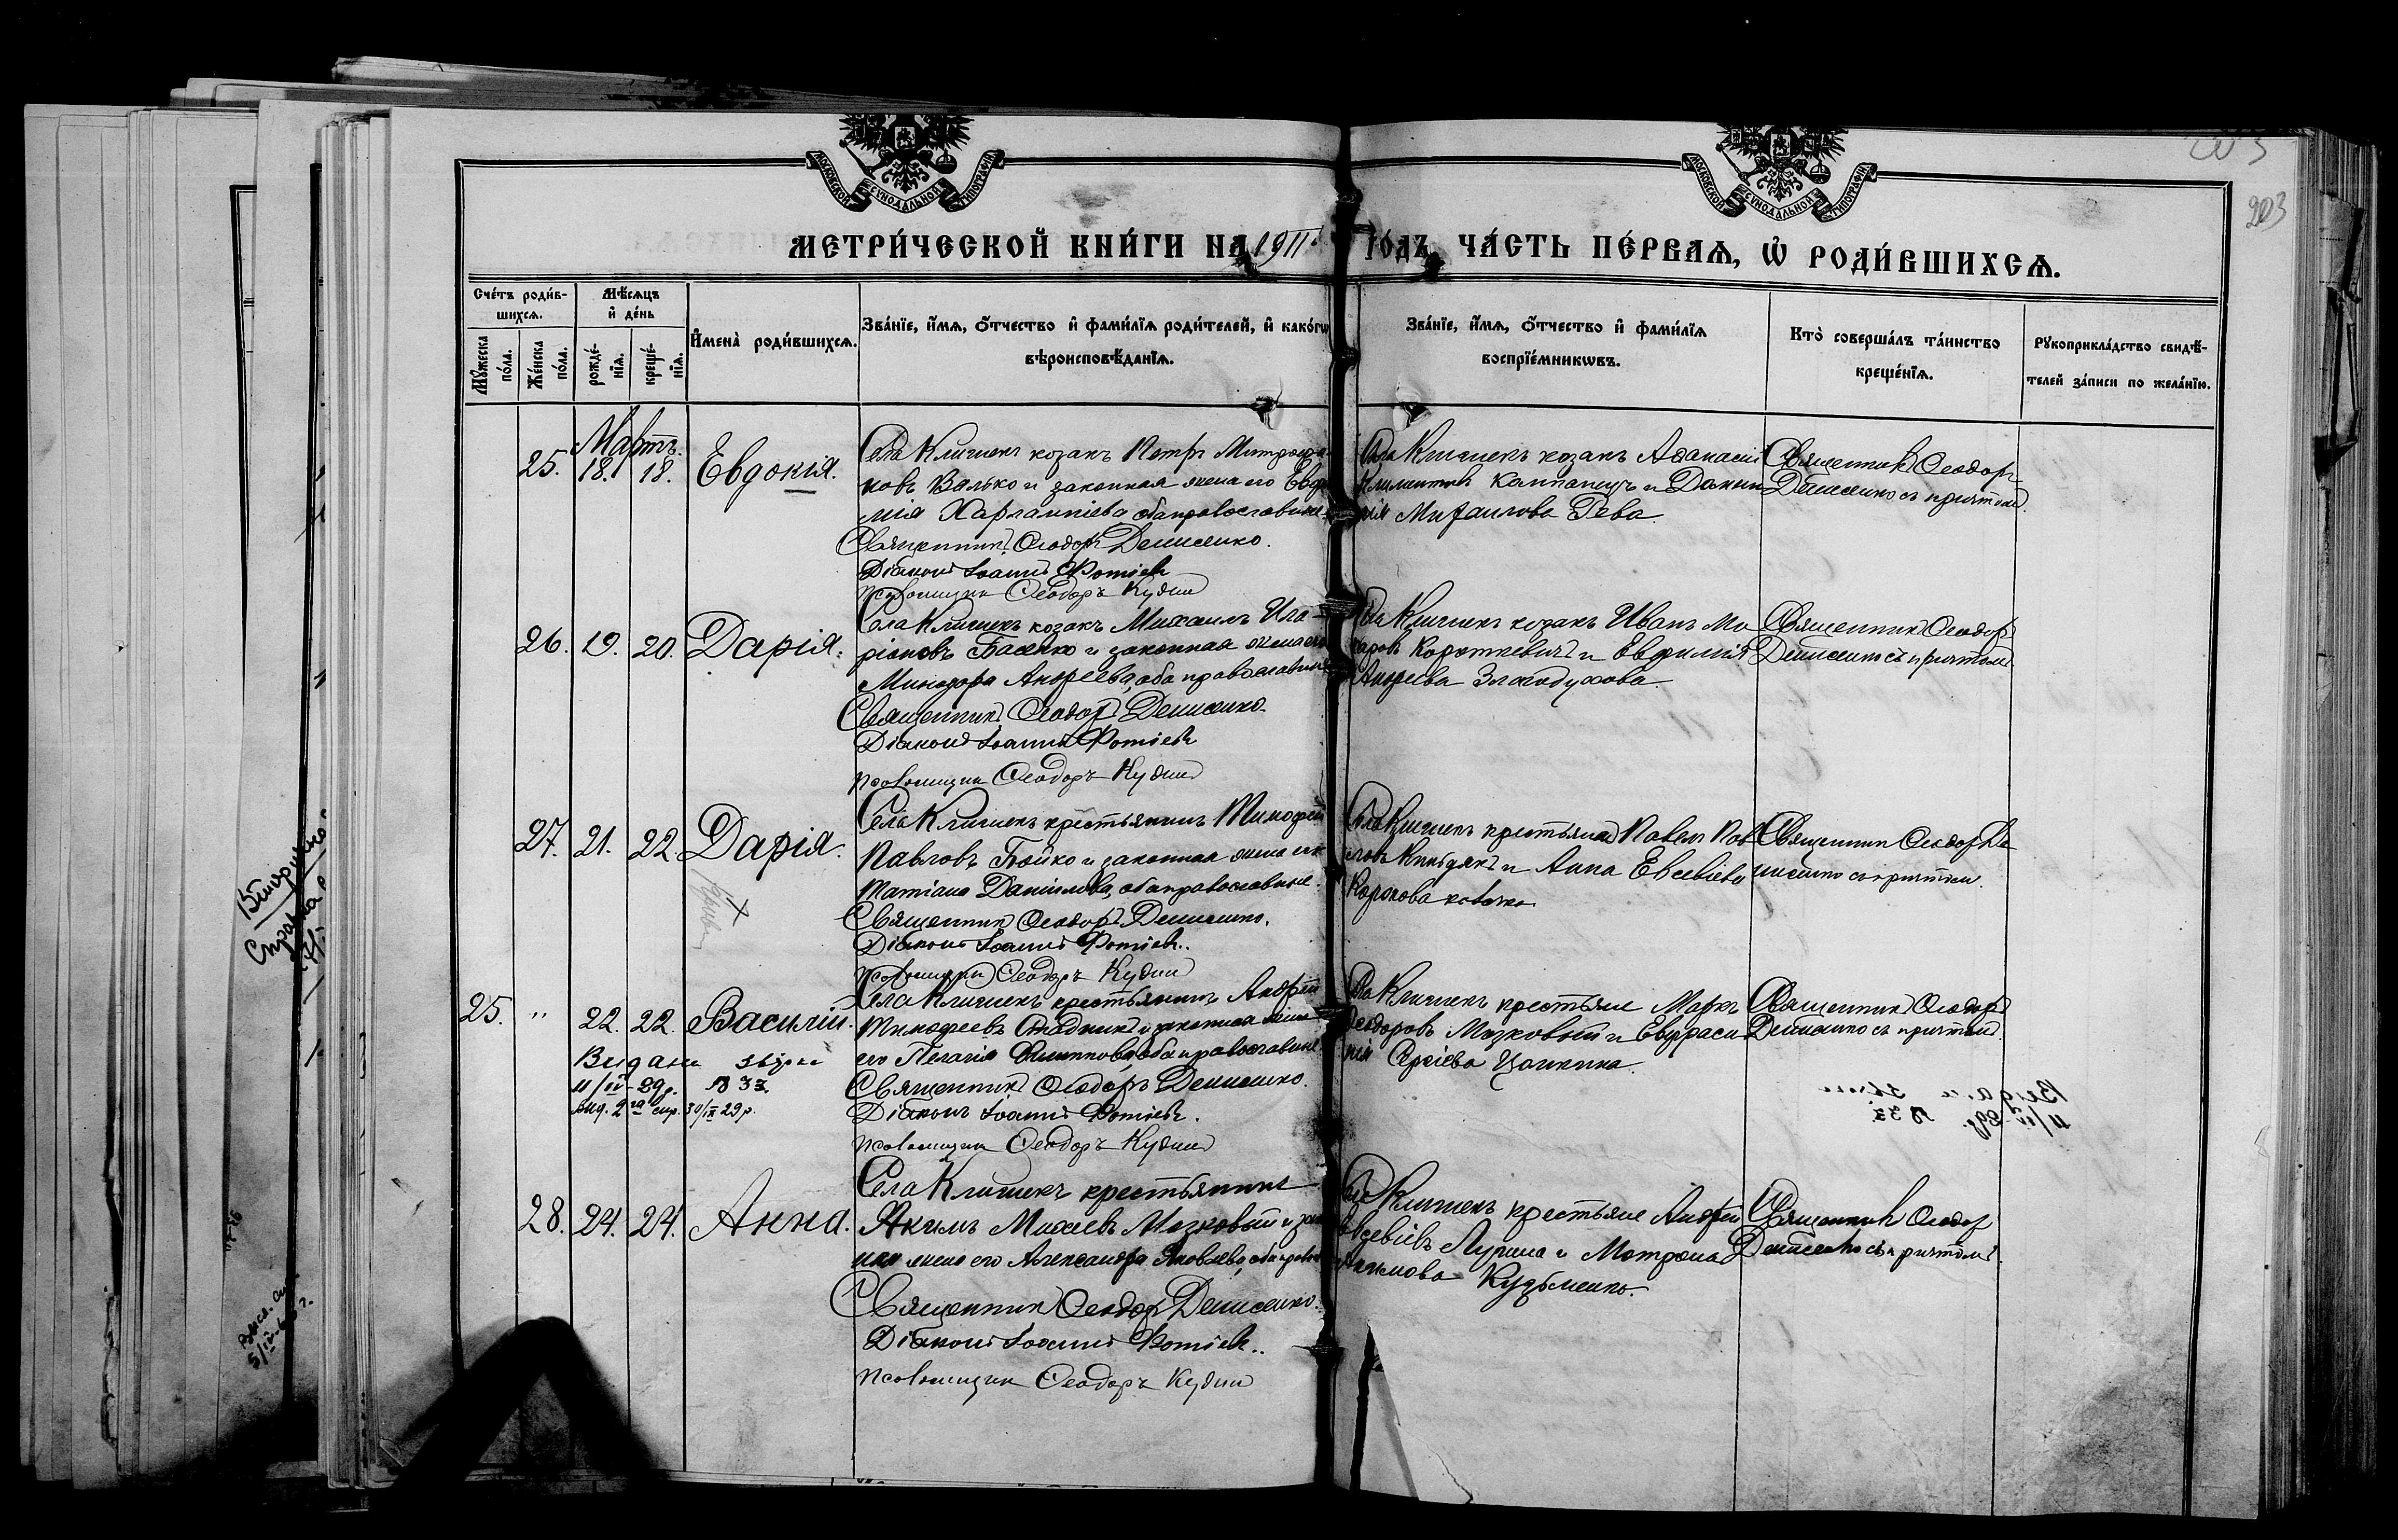 МОСКОВСКОЙ СУНОДАЛЬНОЙ ТИПОГРАФІИ
МОСКОВСКОЙ СУНОДАЛЬНОЙ ТИПОГРАФІИ
203
МЕТРИ́ЧЕСКОЙ КНИ́ГИ НА 1911 ГО́ДЪ, ЧА́СТЬ ПЕ́РВАѦ, Ѡ҆ РОДИ́ВШИХСѦ.
Сче́тъ роди́в-
шихсѧ.
Мꙋ́жеска по́ла.
Же́нска по́ла.
Мѣ́сѧцъ
и҆ де́нь
рожде́-
нїѧ.
креще́-
нїѧ.
И҆мена̀ роди́вшихсѧ.
Зва́нїе, и҆́мѧ, ѻ҆́тчество и҆ фами́лїѧ роди́телей, и҆ како́гѡ
вѣроисповѣ́данїѧ.
Зва́нїе, и҆́мѧ, ѻ҆́тчество и҆ фами́лїѧ
воспрїе́мникѡвъ.
Кто̀ соверша́лъ та́инство
креще́нїѧ.
Рꙋкоприкла́дство свидѣ́-
телей за́писи по жела́нїю.
Мартъ.
25. 18. 18. Евдокія.
Села Клишекъ козакъ Петръ Митрофа-
новъ Валько и законная жена его Евфи
мія Харлампіева, оба православные
Священникъ Ѳеодоръ Денисенко.
Діаконъ Іоаннъ Фотіевъ
Псаломщикъ Ѳеодоръ Кудин
Села Клишекъ козакъ Аѳанасій
Климентовъ и
Михаилова Гева.
Священникъ Ѳеодоръ
Денисенко съ причтомъ.
26. 19. 20. Дарія.
Села Клишекъ козакъ Михаилъ Ила-
ріоновъ Басенко и законная жена его
Минодора Андреева, оба православные
Священникъ Ѳеодоръ Денисенко.
Діаконъ Іоаннъ Фотіевъ
Псаломщикъ Ѳеодоръ Кудин
Села Клишекъ козакъ Иванъ Ма
каровъ Короткевичъ и Евфимія
Андреева
Священникъ Ѳеодоръ
Денисенко съ причтомъ
27. 21. 22. Дарія.
Села Клишекъ крестьянинъ Тимофей
Павловъ Бойко и законная жена его
Татіана Даніилова, оба православные.
Священникъ Ѳеодоръ Денисенко.
Діаконъ Іоаннъ Фотіевъ.
Псаломщикъ Ѳеодоръ Кудин
Села Клишекъ крестьяне Павелъ Пав
ловъ и Анна Евсевіева
Священникъ Ѳеодоръ Де
нисенко съ причтомъ.
25. " 22. 22. Василій.
Села Клишекъ крестьянинъ Андрей
Тимофеевъ Стадникъ и законная жена
его Пелагія Филиппова, оба православные.
Священникъ Ѳеодоръ Денисенко.
Діаконъ Іоаннъ Фотіевъ.
Псаломщикъ Ѳеодоръ Кудин
Видана
11/IV-29р. № 37
вид. 2га спр. 30/IX 29 р.
Села Клишекъ крестьяне Маркъ
Ѳеодоровъ Мозковой и Евфраси
нія Сергіева Цопкина.
Священникъ Ѳеодоръ
Денисенко съ причтомъ.
28. 24. 24. Анна.
Села Клишекъ крестьянинъ
Якимъ Михеевъ Мозковый и закон
ная жена его Александра Яковлева, оба правос
Священникъ Ѳеодоръ Денисенко.
Діаконъ Іоаннъ Фотіевъ..
Псаломщикъ Ѳеодоръ Кудин
Села Клишекъ крестьяне Андрей
Евсевіевъ Лупина и Матрона
Акимова Кузьменко.
Священникъ Ѳеодоръ
Денисенко съ причтомъ.